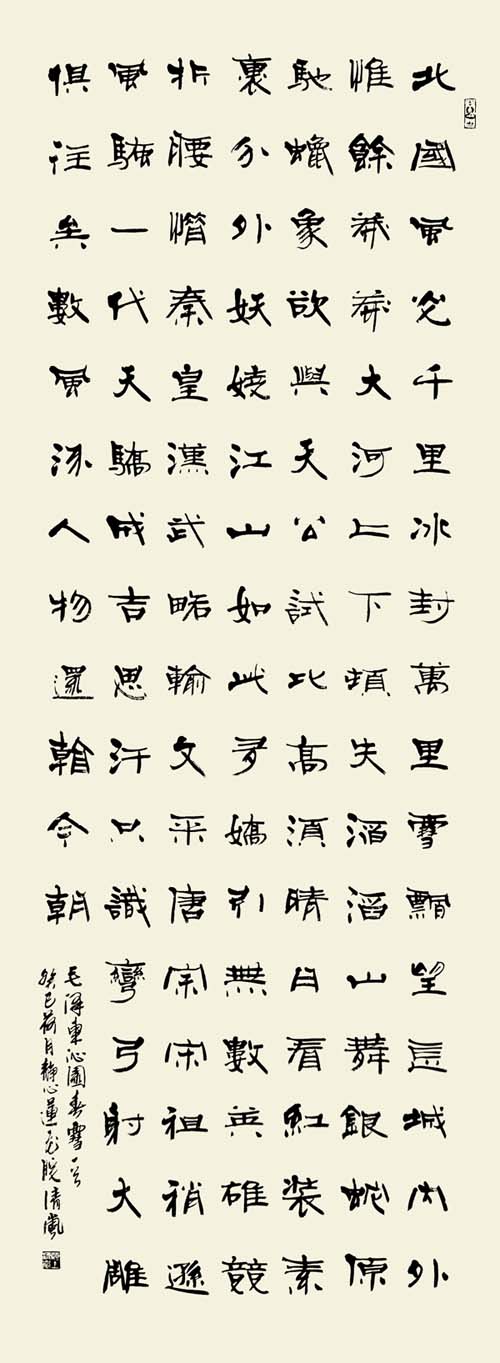 北國風光千里冰封萬里雪飄望長城內外
惟餘莽莽大河上下頓失滔滔山舞銀蛇原
馳蠟象欲與天公試比高須晴日看紅裝素
裹分外妖嬈江山如此多嬌引無數英雄競
折腰惜秦皇漢武略輸文采唐宗宋祖稍遜
風騷一代天驕成吉思汗只識彎弓射大雕
俱往矣數風流人物還看今朝
毛澤東沁園春雪一首
癸巳荷月靜心蓮